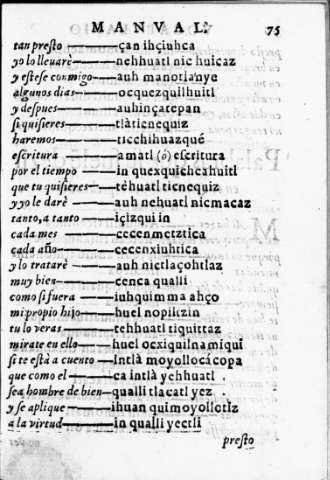 MANVAL. 75
tan presto —— çan ihçiuhca
yo lo lleuarè —— nehhuatl nic huicaz
y estese conmigo —— auh manotlanye
algunos dias —— ocquezquilhuitl
y despues —— auhinçatepan
si quisieres —— tlàticnequiz
haremos —— ticchihuazquè
escritura —— amatl (ó) escritura
por el tiempo —— in quexquichcahuitl
que tu quisieres —— tèhuatl ticnequiz
y yo le darè —— auh nehuatl nicmacaz
tanto, a tanto —— içizqui in
cada mes —— cecen metztica
cada año —— cecenxiuhtica
y lo tratarè —— auh nictlaçohtlaz
muy bien —— cenca qualli
como si fuera —— iuhquimma ahço
mi propio hijo —— huel nopiltzin
tu lo veras —— tehhuatl tiquittaz
mirate en ello —— huel ocxiquilnamiqui
si te està a cuento —— intlà moyollocàcopa
que como el —— ca intlà yehhuatl
sea hombre de bien —— qualli tlacatl yez
y se aplique —— ihuan quimoyollotiz
a la virtud —— in qualli yectli
presto